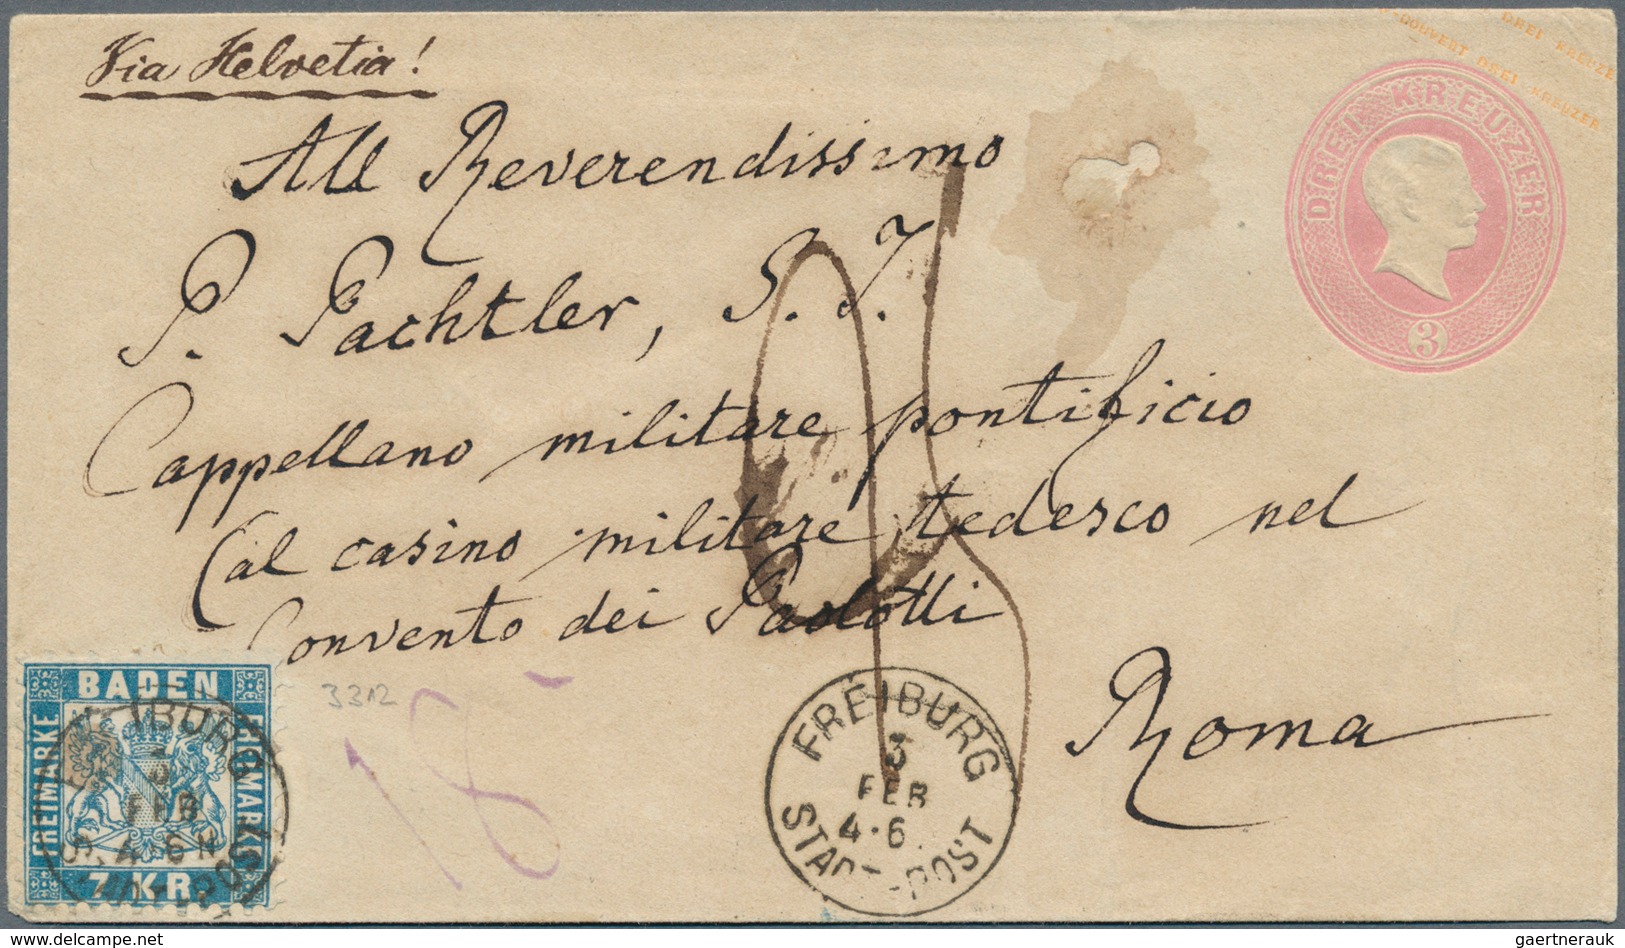 Via Helvetia!
-COUVERT DREI KREUZER
DREI KREUZE
DREI KREUZER
3
All Reverendissimo
P. Pachtler, S. J.
Cappellano militare pontificio
(al casino militare tedesco nel
Convento dei Paolotti
Roma
BADEN
FREIMARKE
FREIMARKE
7 KR.
FREIBURG
3
FEB
4-6N
STADTPOST
3312
18
FREIBURG
3
FEB
4·6.
STADT-POST
gaertnerauk @ delcampe.net